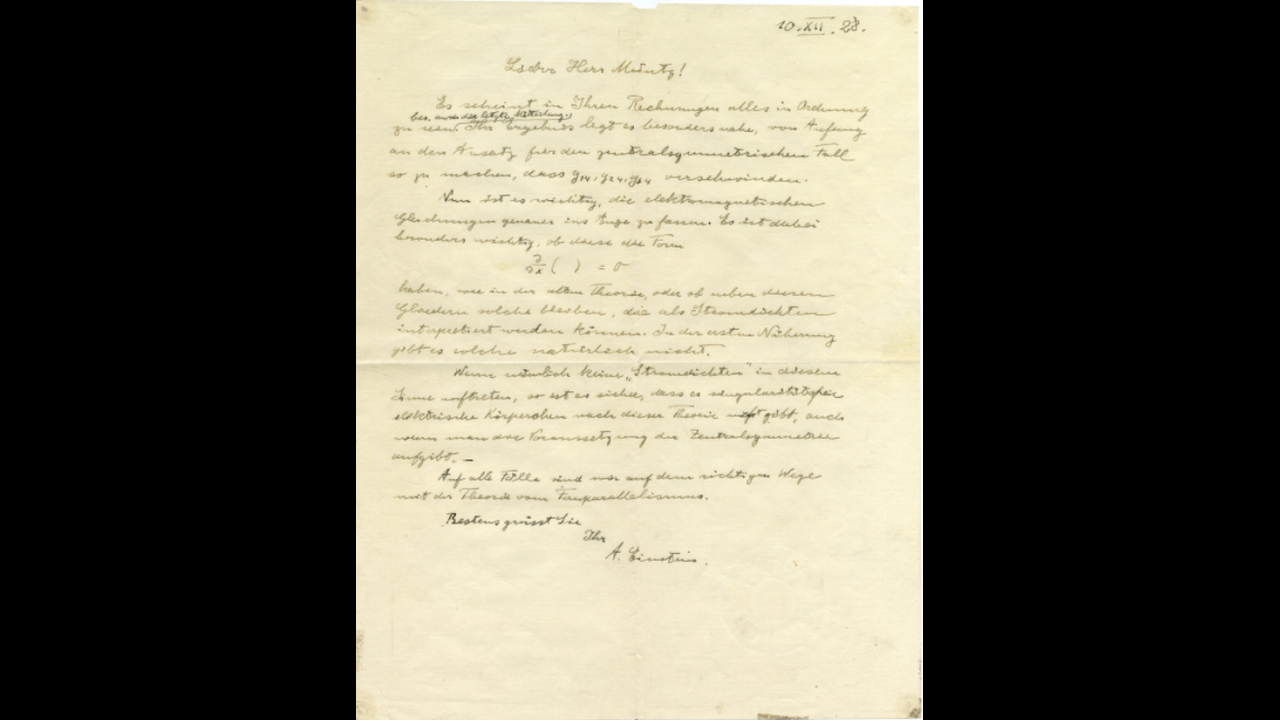 10. XII. 28.
Lieber Herr Müntz!
Es scheint in Ihren Rechnungen alles in Ordnung
bes. auch der letzte
zu sein. Ihr Ergebnis legt es besonders nahe, von Anfang
an den Ansatz für den zentralsymmetrischen Fall
so zu machen, dass g14, g24, g34 verschwinden.
Nun ist es wichtig, die elektromagnetischen
Gleichungen genauer ins Auge zu fassen. Es ist dabei
besonders wichtig, ob diese die Form
∂/∂x ( ) = 0
haben, wie in der alten Theorie, oder ob neben diesen
Gliedern solche bleiben, die als Stromdichten
interpretiert werden können. In der ersten Näherung
gibt es solche natürlich nicht.
Wenn nämlich keine „Stromdichten" in diesem
Sinne auftreten, so ist es sicher, dass es singularitätsfreie
elektrische Körperchen nach dieser Theorie nicht gibt, auch
wenn man die Voraussetzung der Zentralsymmetrie
aufgibt. —
Auf alle Fälle sind wir auf dem richtigen Wege
mit der Theorie vom Fernparallelismus.
Bestens grüsst Sie
Ihr
A. Einstein.